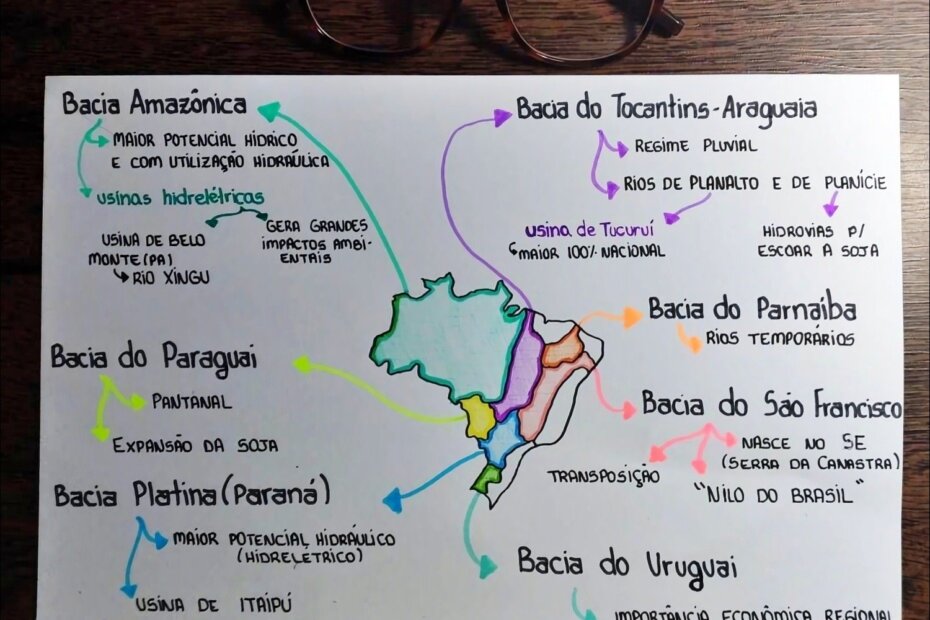 Bacia Amazônica
MAIOR POTENCIAL HÍDRICO
E COM UTILIZAÇÃO HIDRAÚLICA
usinas hidrelétricas
USINA DE BELO
MONTE (PA)
RIO XINGU
GERA GRANDES
IMPACTOS AMBI-
ENTAIS
Bacia do Tocantins-Araguaia
REGIME PLUVIAL
RIOS DE PLANALTO E DE PLANÍCIE
usina de Tucuruí
MAIOR 100% NACIONAL
HIDROVIAS P/
ESCOAR A SOJA
Bacia do Parnaíba
RIOS TEMPORÁRIOS
Bacia do Paraguai
PANTANAL
EXPANSÃO DA SOJA
Bacia do São Francisco
NASCE NO SE
(SERRA DA CANASTRA)
TRANSPOSIÇÃO
"NILO DO BRASIL"
Bacia Platina (Paraná)
MAIOR POTENCIAL HIDRÁULICO
(HIDRELÉTRICO)
USINA DE ITAIPÚ
Bacia do Uruguai
IMPORTÂNCIA ECONÔMICA REGIONAL